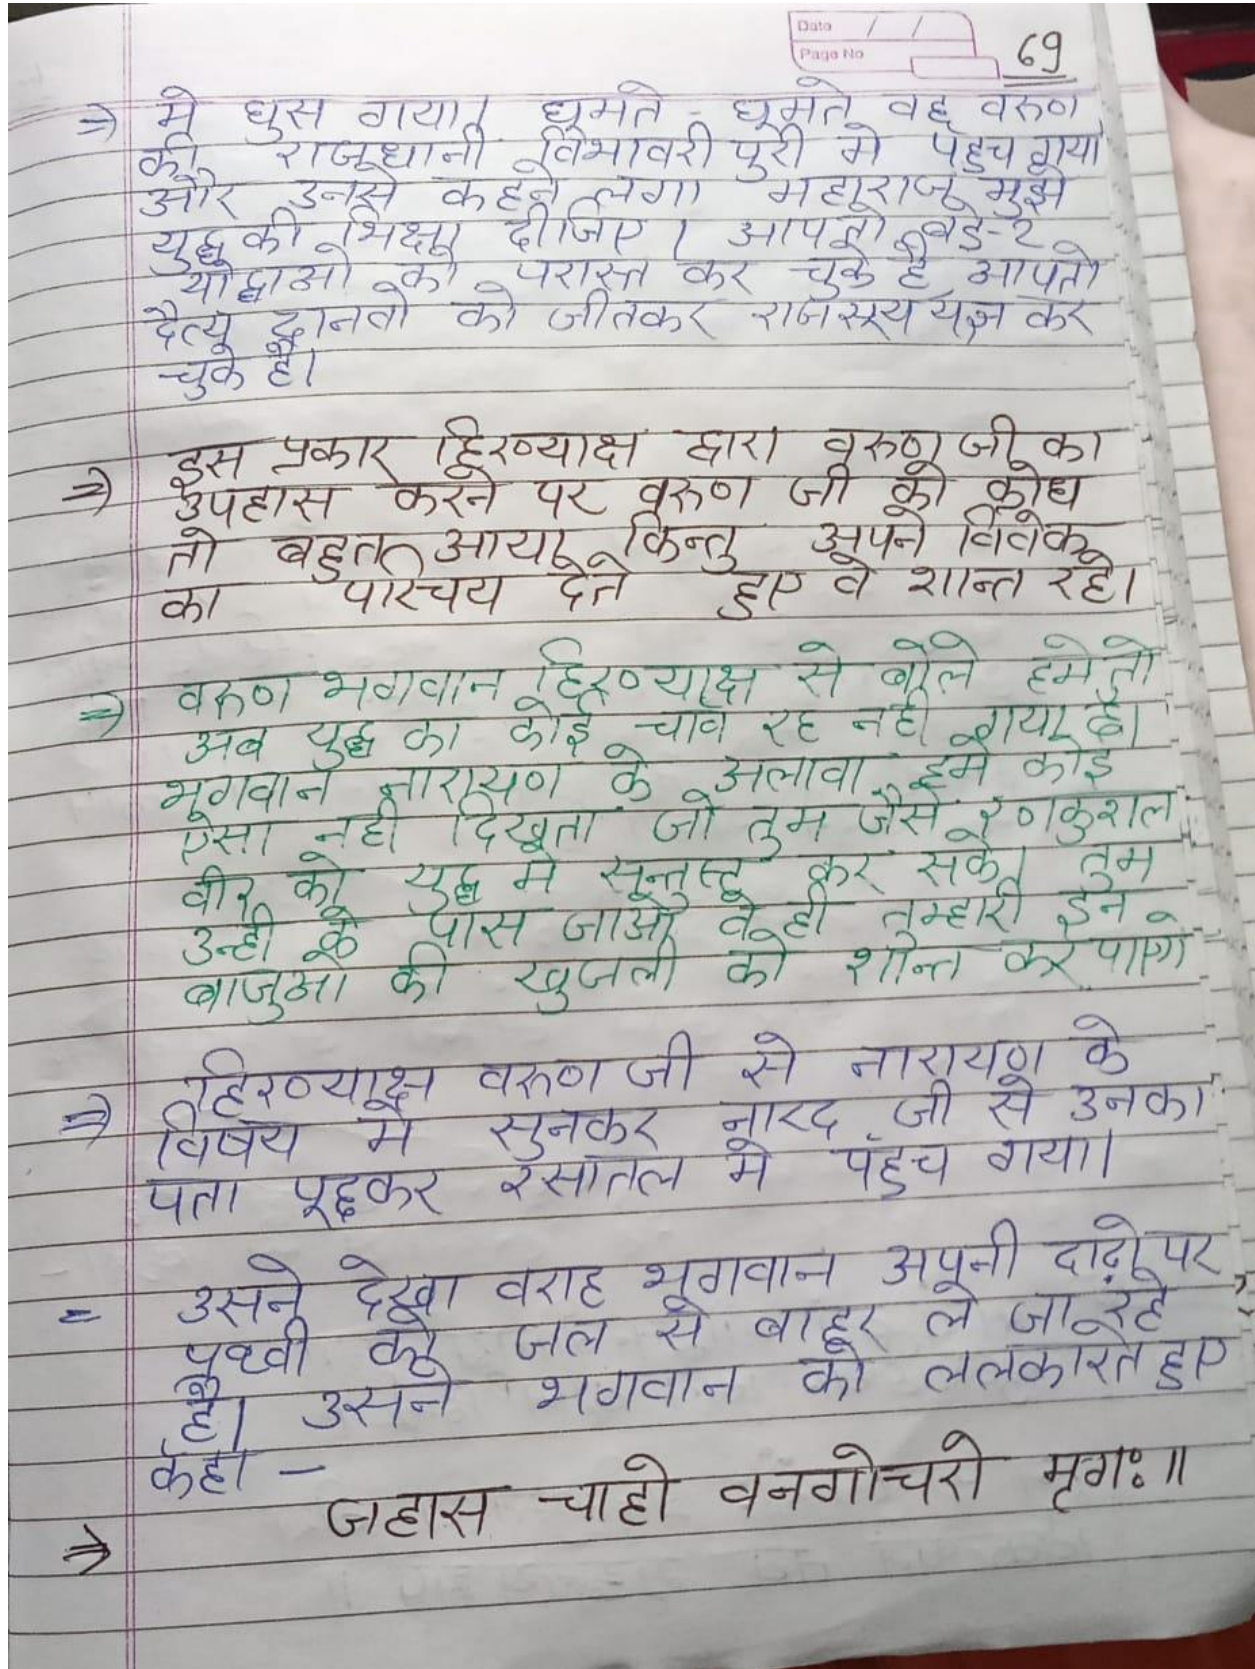 Date / /
Page No
69
⇒ मे घुस गया। घूमते - घूमते वह वरुण
की राजधानी विभावरी पुरी मे पहुंच गया
और उनसे कहने लगा महाराज मुझे
युद्ध की भिक्षा दीजिए। आपतो बडे-२
योद्धाओ को परास्त कर चुके है आपतो
दैत्य दानवो को जीतकर राजसूय यज्ञ कर
चुके है।
⇒ इस प्रकार हिरण्याक्ष द्वारा वरुण जी का
उपहास करने पर वरुण जी को क्रोध
तो बहुत आया किन्तु अपने विवेक
का परिचय देते हुए वे शान्त रहे।
⇒ वरुण भगवान हिरण्याक्ष से बोले हमे तो
अब युद्ध का कोई चाव रह नही गया है।
भगवान नारायण के अलावा हमे कोई
ऐसा नही दिखता जो तुम जैसे रणकुशल
वीर को युद्ध मे सन्तुष्ट कर सके। तुम
उन्ही के पास जाओ वे ही तुम्हारी इन
बाजुओ की खुजली को शान्त कर पाएगे
⇒ हिरण्याक्ष वरुण जी से नारायण के
विषय मे सुनकर नारद जी से उनका
पता पूछकर रसातल मे पहुंच गया।
= उसने देखा वराह भगवान अपनी दाढ़ो पर
पृथ्वी को जल से बाहर ले जा रहे
है। उसने भगवान को ललकारते हुए
कहा –
⇒ जहास चाहो वनगोचरो मृगः॥